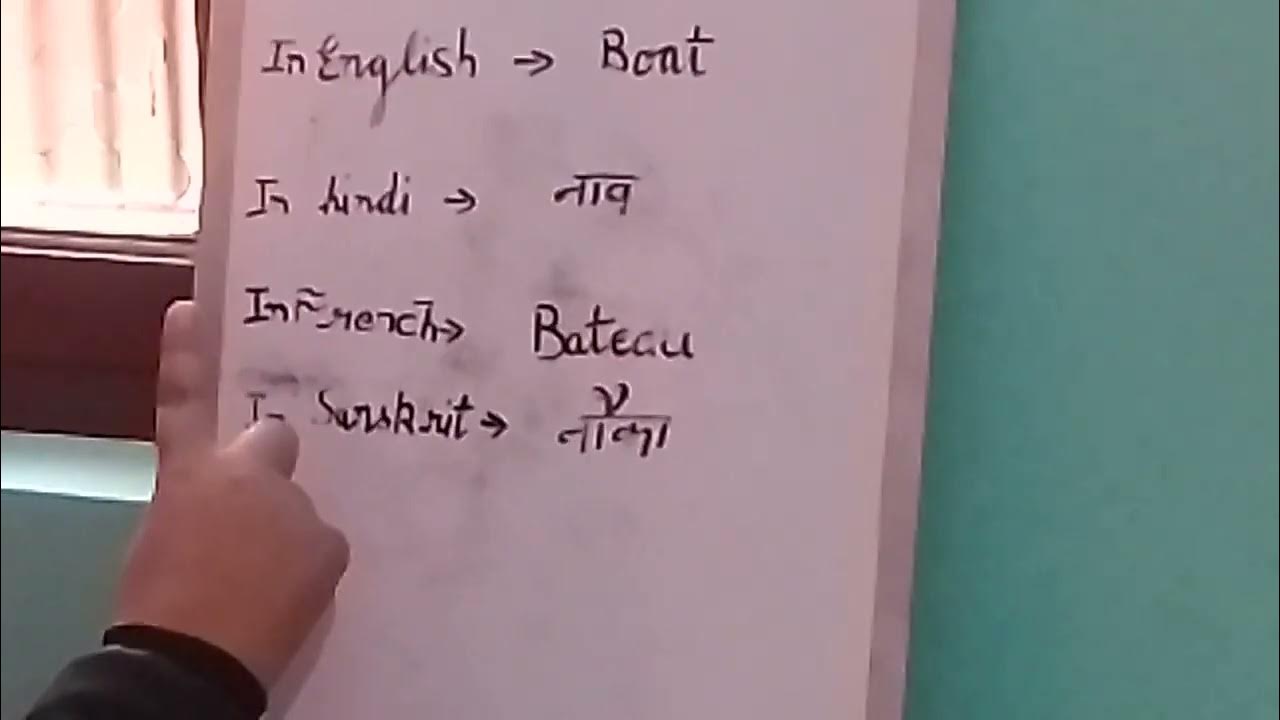 In English → Boat
In hindi → नाव
In French → Bateau
In Sanskrit →